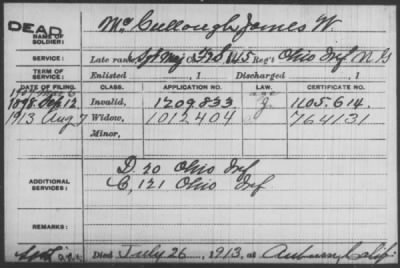 DEAD
NAME OF SOLDIER: McCullough, James W.
SERVICE: Late rank, Sgt Maj Co. F&S, 145 Reg't Ohio Inf. N. G.
TERM OF SERVICE: Enlisted , 1 Discharged , 1
DATE OF FILING. CLASS. APPLICATION NO. LAW. CERTIFICATE NO.
age
1898. Sep. 12 Invalid, 1209.833 g. 1105.614.
1913 Aug 7 Widow, 1012404 764131
Minor,
ADDITIONAL SERVICES: D. 20 Ohio Inf
C, 121 Ohio Inf
REMARKS:
Died July 26, 1913, at Auburn, Calif.